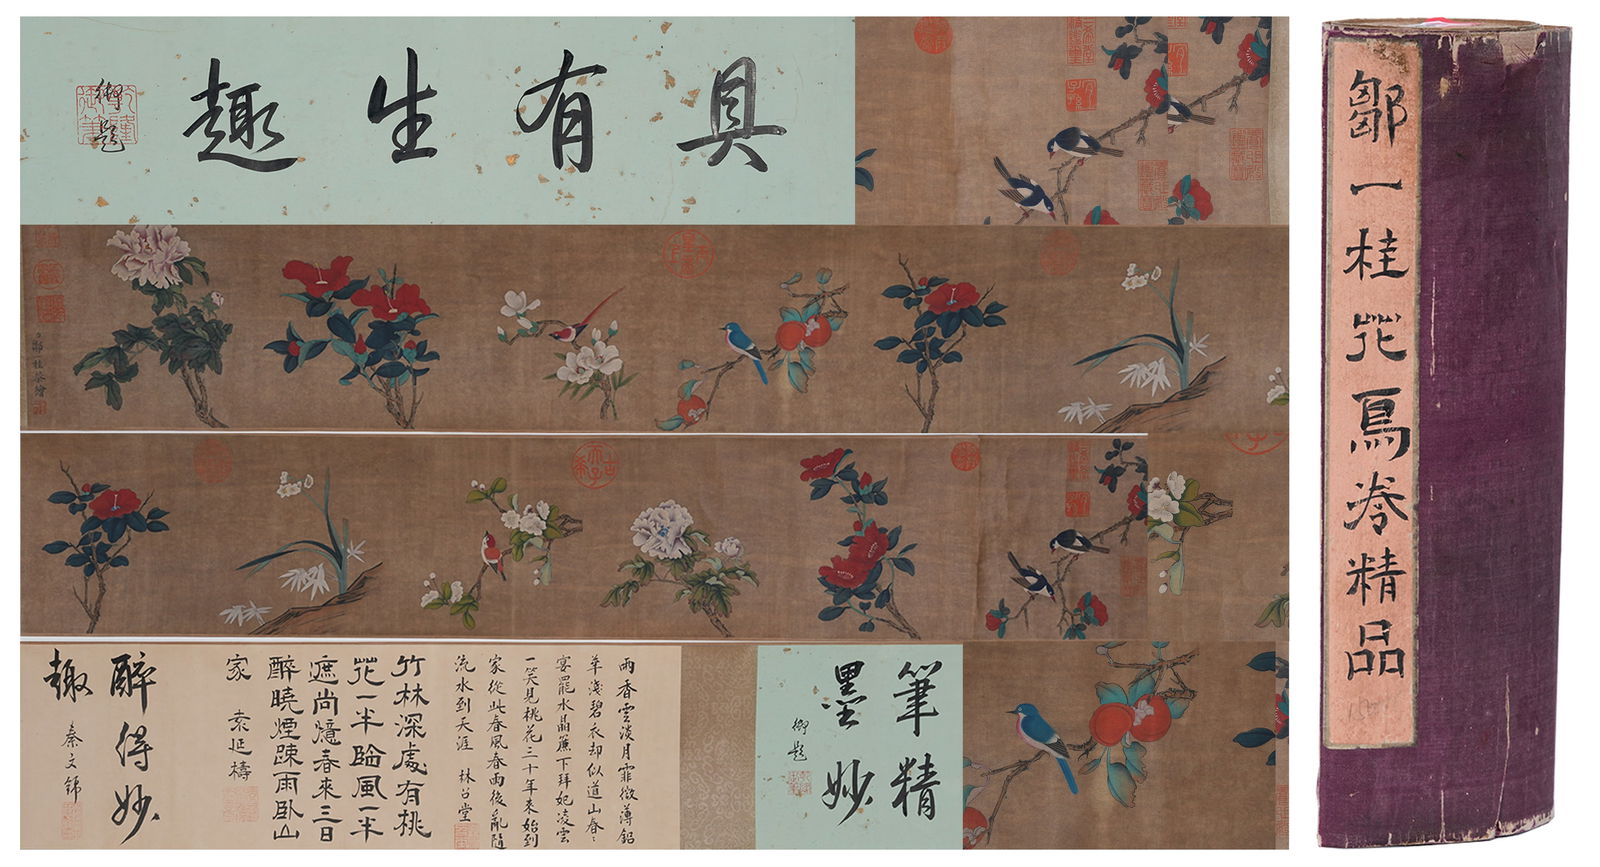 具有生趣
御題
乾隆御筆
鄒一桂恭繪
筆精
墨妙
御題
雨香雲淡月霏微薄鉛
華淺碧衣却似道山春
宴罷水晶簾下拜妃凌雲
一笑見桃花三十年來始到
家從此春風春雨後亂隨
流水到天涯 林召堂
竹林深處有桃
花一半臨風一半
遮尚憶春來三日
醉曉煙疎雨臥山
家 袁延檮
醉得妙
趣 秦文錦
鄒一桂花鳥卷精品